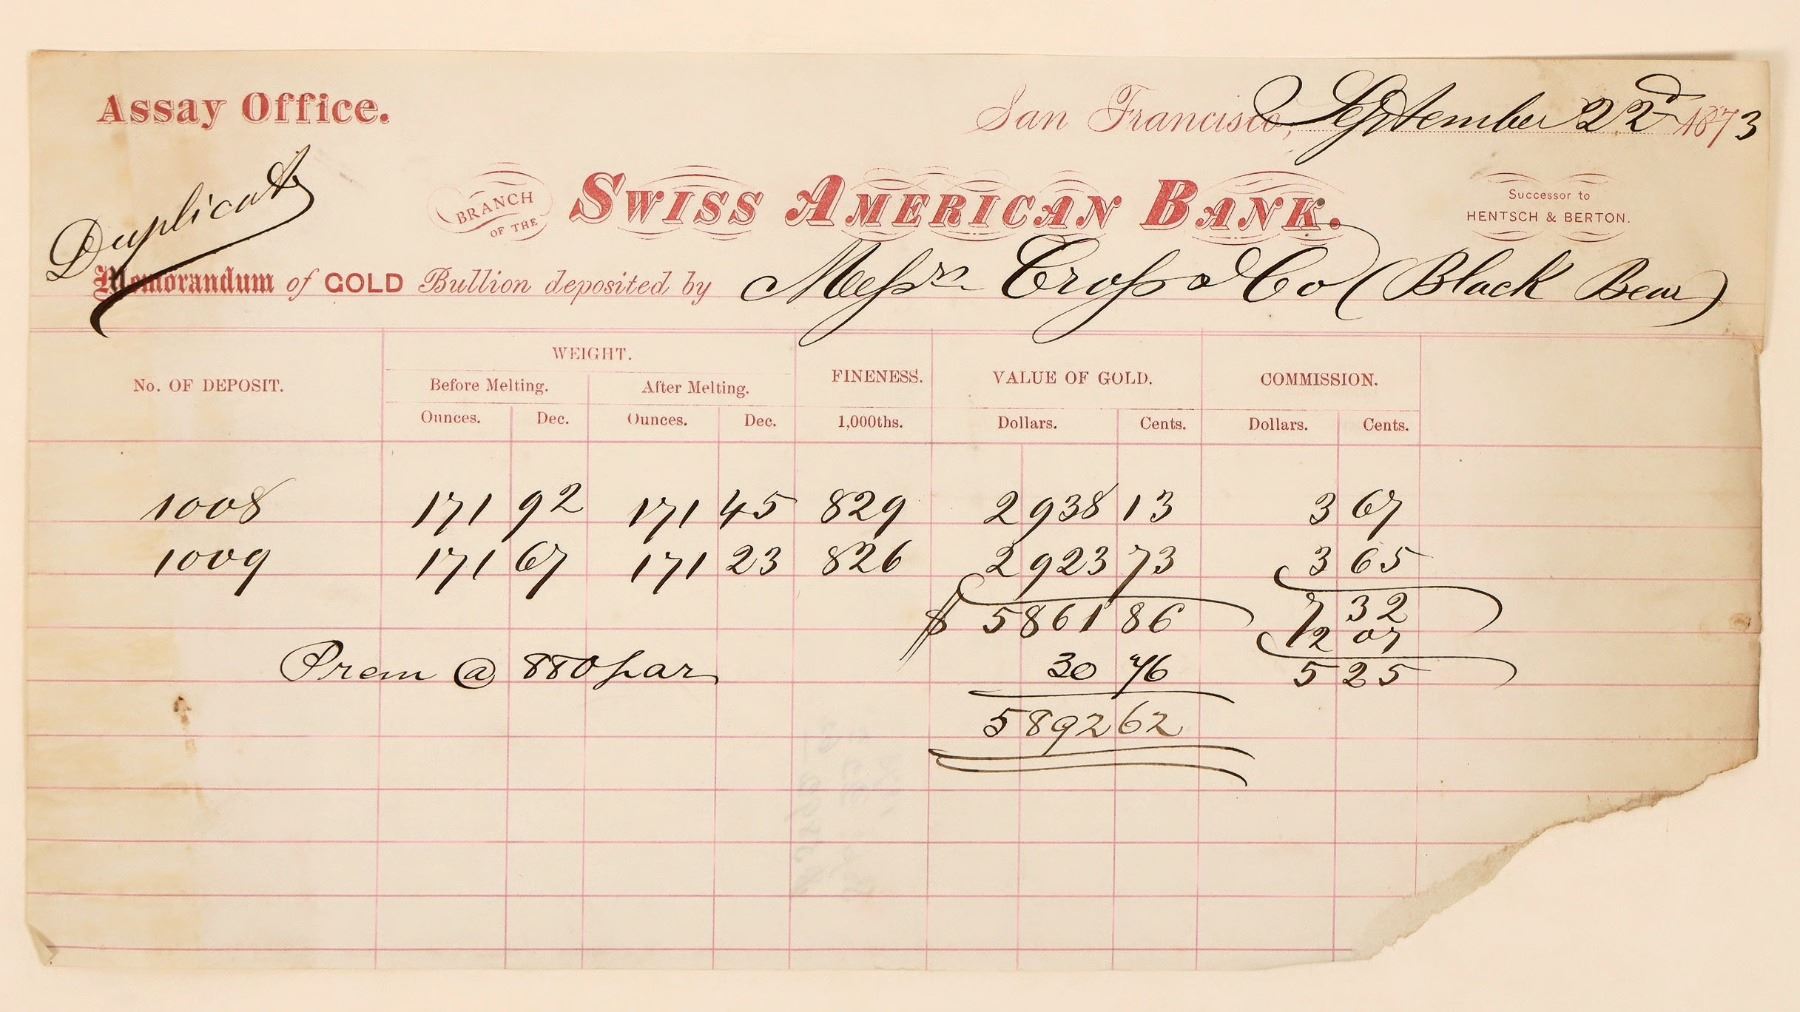 Assay Office.
San Francisco, September 22d 1873
Duplicate
BRANCH OF THE
SWISS AMERICAN BANK.
Successor to
HENTSCH & BERTON.
Memorandum of GOLD Bullion deposited by Messrs Cross & Co (Black Bear)
No. OF DEPOSIT. WEIGHT. FINENESS. VALUE OF GOLD. COMMISSION.
Before Melting. After Melting.
Ounces. Dec. Ounces. Dec. 1,000ths. Dollars. Cents. Dollars. Cents.
1008 171 92 171 45 829 2938 13 3 67
1009 171 67 171 23 826 2923 73 3 65
$ 5861 86 7 32
2 07
Prem @ 880 par 30 76 5 25
5892 62